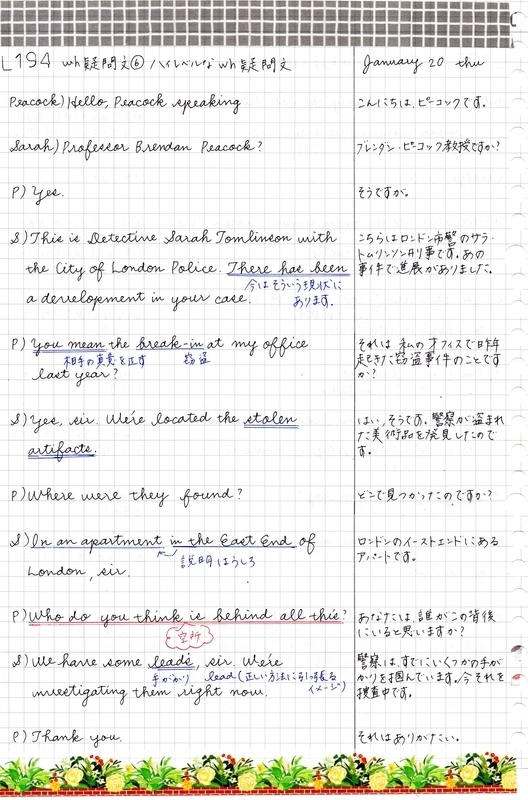 L194 wh疑問文⑥ ハイレベルな wh疑問文 January 20 thu
Peacock) Hello, Peacock speaking
こんにちは、ピーコックです。
Sarah) Professor Brendan Peacock?
ブレンダン・ピーコック教授ですか?
P) Yes.
そうですが。
S) This is Detective Sarah Tomlinson with
the City of London Police. There has been
今はそういう現状に
あります。
a development in your case.
こちらはロンドン市警のサラ・
トムリンソン刑事です。あの
事件で進展がありました。
P) You mean the break-in at my office
相手の真意を正す
窃盗
last year?
それは 私のオフィスで昨年
起きた窃盗事件のことです
か?
S) Yes, sir. We're located the stolen
artifacts.
はい、そうです。警察が盗まれ
た美術品を発見したので
す。
P) Where were they found?
どこで見つかったのですか?
S) In an apartment in the East End of
説明はうしろ
London, sir.
ロンドンのイーストエンドにある
アパートです。
P) Who do you think is behind all this?
空所
あなたは、誰がこの背後
にいると思いますか?
S) We have some leads, sir. We're
手がかり
lead (正しい方法に引っ張る
イメージ)
investigating them right now.
警察は、すでにいくつかの手が
かりを掴んでいます。今それを
捜査中です。
P) Thank you.
それはありがたい。